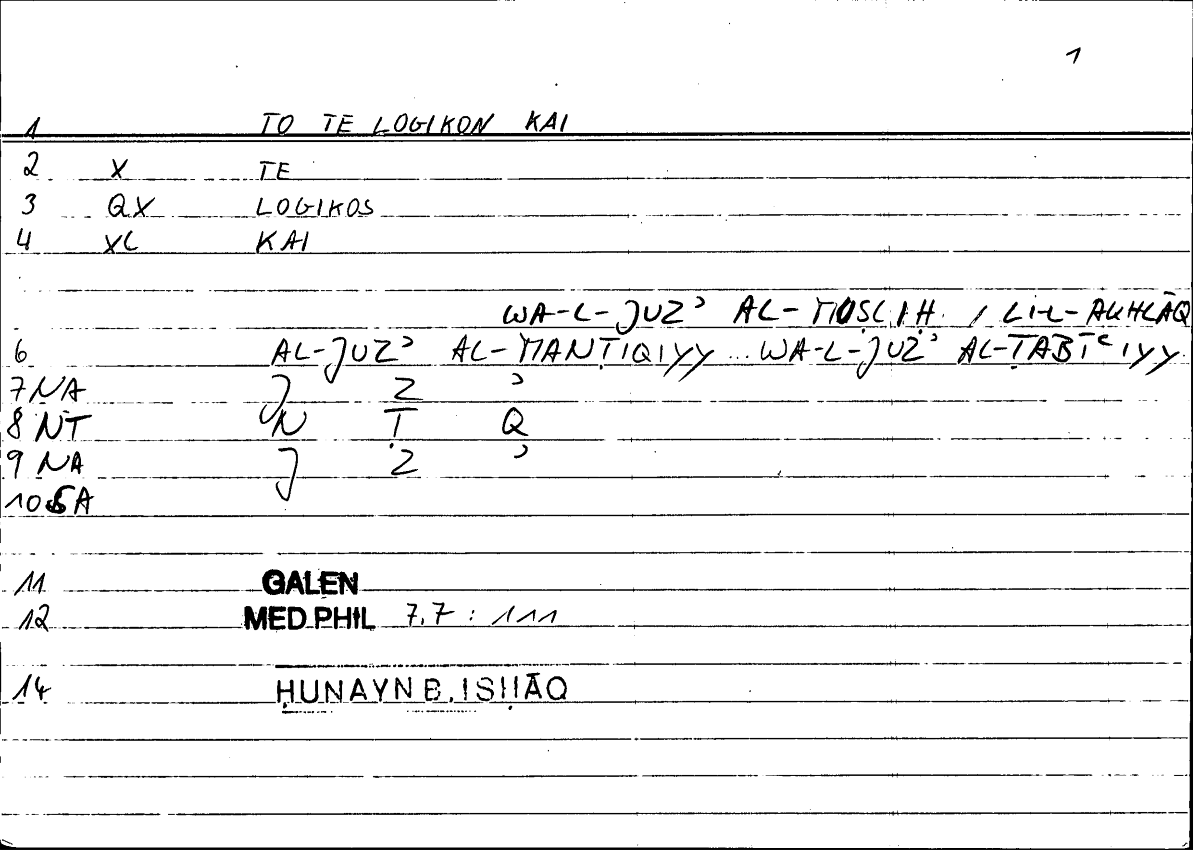 1
1 TO TE LOGIKON KAI
2 X TE
3 QX LOGIKOS
4 XL KAI
WA-L-JUZʾ AL-MUṢLIḤ / LI-L-AKHLĀQ
6 AL-JUZʾ AL-MANṬIQIYY ... WA-L-JUZʾ AL-ṬABĪʿIYY
7 NA J Z ʾ
8 NT N Ṭ Q
9 NA J Z ʾ
10 SA
11 GALEN
12 MED PHIL 7,7 : 111
14 ḤUNAYN B. ISḤĀQ